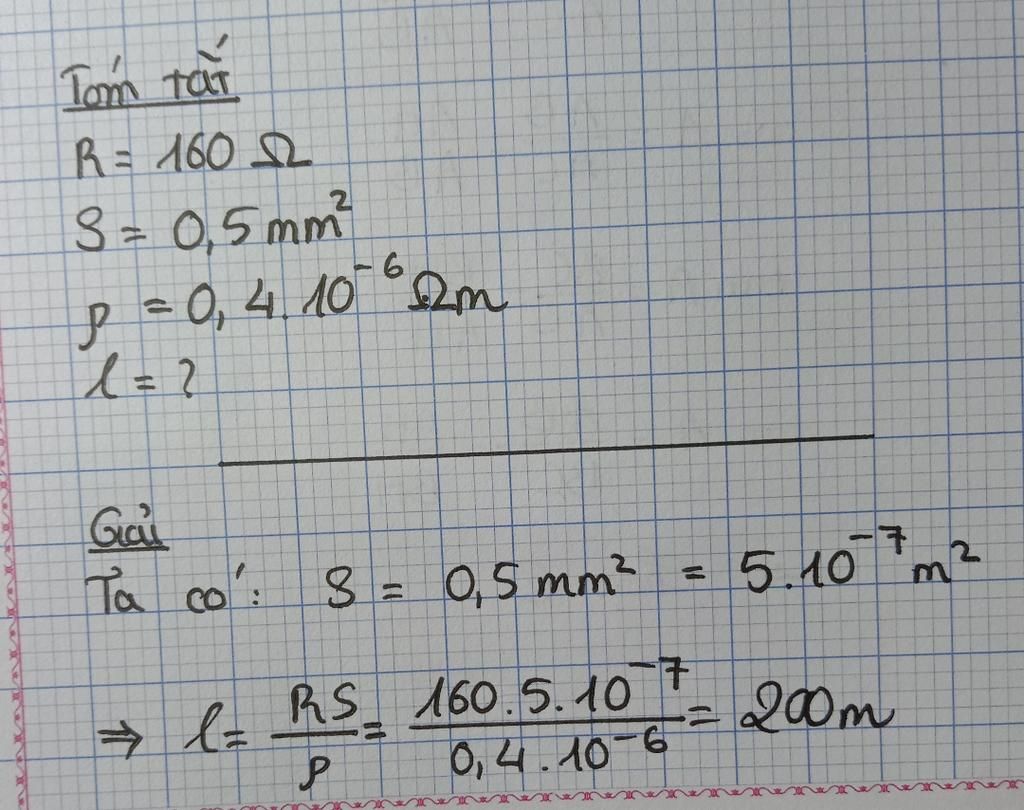 Tóm tắt
R = 160 Ω
S = 0,5 mm²
ρ = 0,4.10⁻⁶ Ωm
l = ?
Giải
Ta có: S = 0,5 mm² = 5.10⁻⁷ m²
⇒ l = RS/ρ = 160.5.10⁻⁷/0,4.10⁻⁶ = 200m